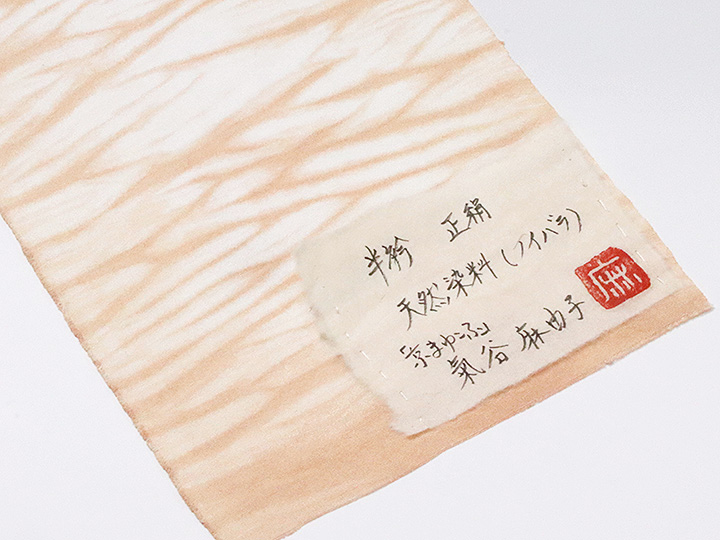 半衿 正絹
天然染料(ノイバラ)
「京まゆこふ」
氣谷 麻由子
麻